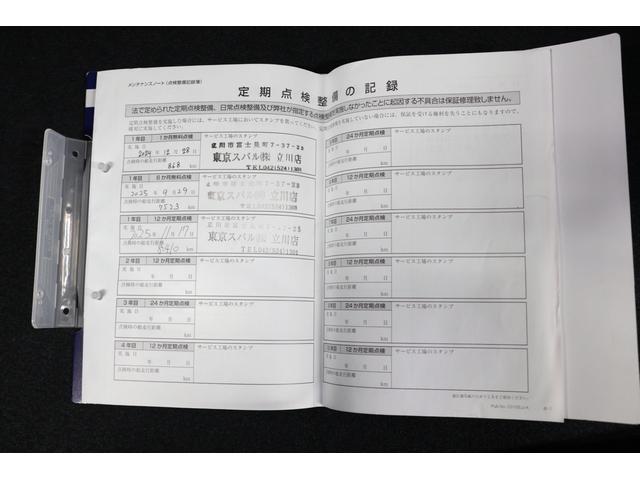 メンテナンスノート（点検整備記録簿）
定期点検整備の記録
法で定められた定期点検整備、日常点検整備及び弊社が指定する点検整備を実施しなかったことに起因する不具合は保証修理致しません。
定期点検整備を実施した場合には、サービス工場においてスタンプを
確実に実施してください。
1年目 1か月無料点検 サービス工場のスタンプ
実施日
2024年12月28日
点検時の総走行距離
868 km
立川市富士見町7-37-23
東京スバル㈱ 立川店
TEL042(524)1301
1年目 6か月無料点検 サービス工場のスタンプ
実施日
2025年9月29日
点検時の総走行距離
7523 km
東京スバル㈱ 立川店
TEL042(524)1301
1年目 12か月定期点検 サービス工場のスタンプ
実施日
2025年11月17日
点検時の総走行距離
km
立川市富士見町7-37-23
東京スバル㈱ 立川店
TEL042(524)1301
2年目 12か月定期点検 サービス工場のスタンプ
実施日
年 月 日
点検時の総走行距離
km
3年目 24か月定期点検 サービス工場のスタンプ
実施日
年 月 日
点検時の総走行距離
km
4年目 12か月定期点検 サービス工場のスタンプ
実施日
年 月 日
点検時の総走行距離
km
24か月定期点検 サービス工場のスタンプ
年 月 日
点検時の総走行距離
km
12か月定期点検 サービス工場のスタンプ
年 月 日
点検時の総走行距離
km
24か月定期点検 サービス工場のスタンプ
年 月 日
点検時の総走行距離
km
12か月定期点検 サービス工場のスタンプ
年 月 日
点検時の総走行距離
km
24か月定期点検 サービス工場のスタンプ
年 月 日
点検時の総走行距離
km
12か月定期点検 サービス工場のスタンプ
年 月 日
点検時の総走行距離
km